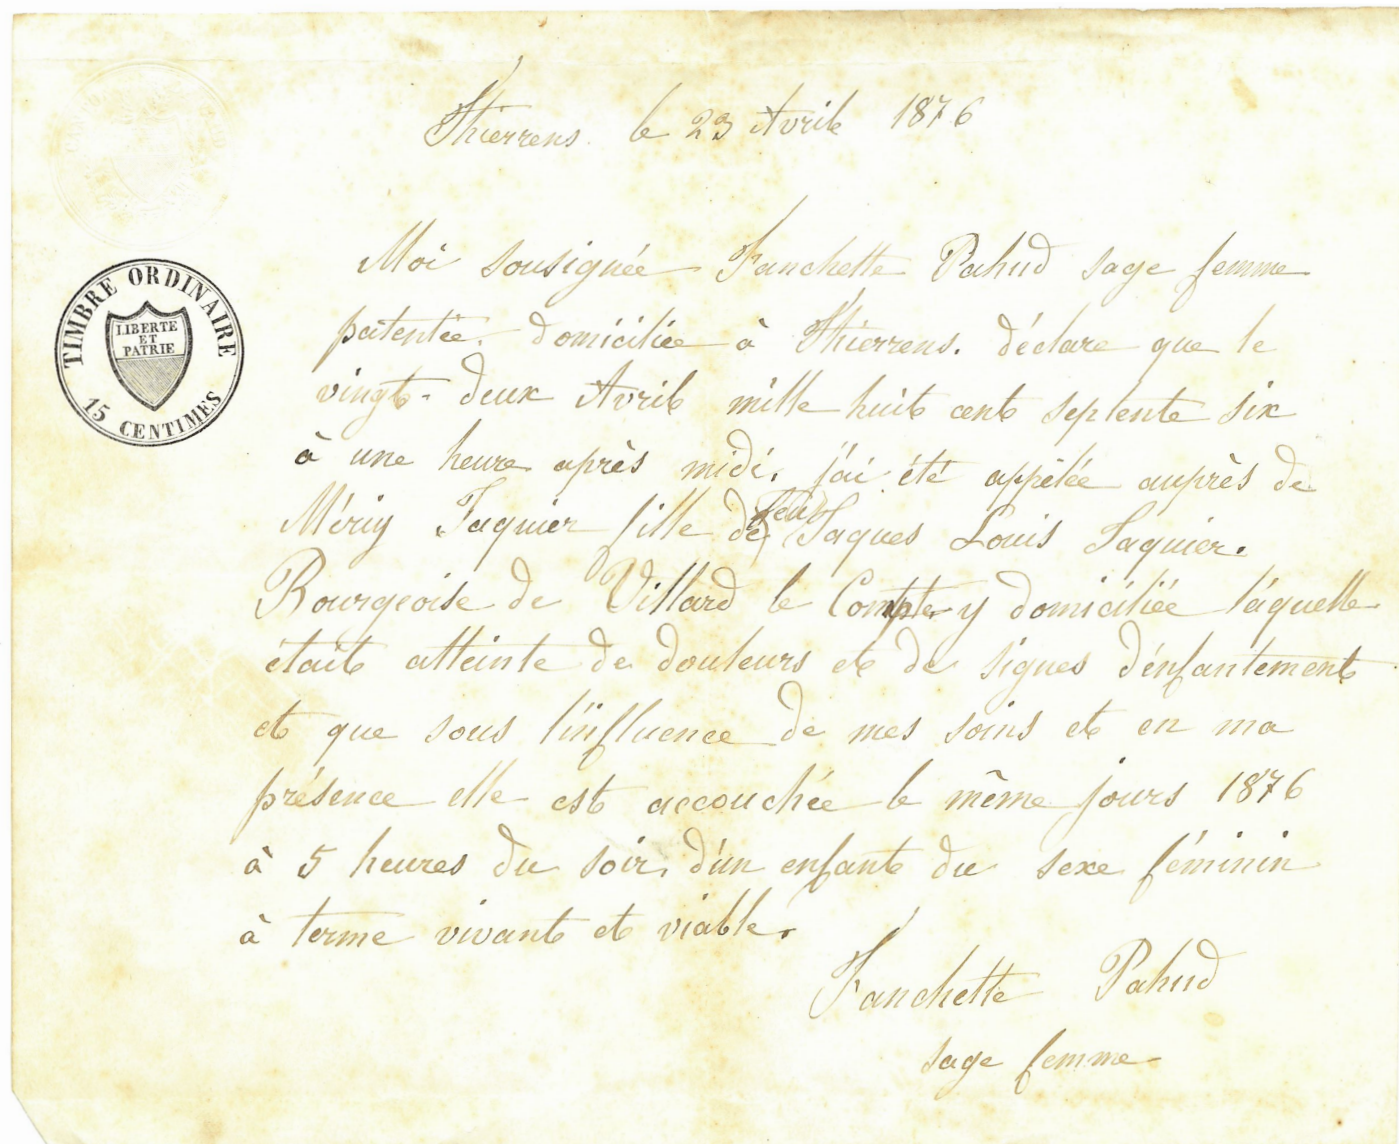 Thierrens. le 23 Avril 1876
TIMBRE ORDINAIRE
LIBERTE
ET
PATRIE
15 CENTIMES
Moi sousignée Fanchette Pahud sage femme
patentée. domiciliée à Thierrens. déclare que le
vingt-deux Avril mille huit cent septente six
à une heure après midi. j'ai été appelée auprès de
Mériy Jaquier fille de feu Jaques Louis Jaquier.
Bourgeoise de Villard le Compte y domiciliée láquelle
était atteinte de douleurs et de signes d'énfantement
et que sous l'influence de mes soins et en ma
présence elle est accouchée le même jours 1876
à 5 heures du soir. d'un enfant du sexe féminin
à terme vivant et viable.
Fanchette Pahud
sage femme